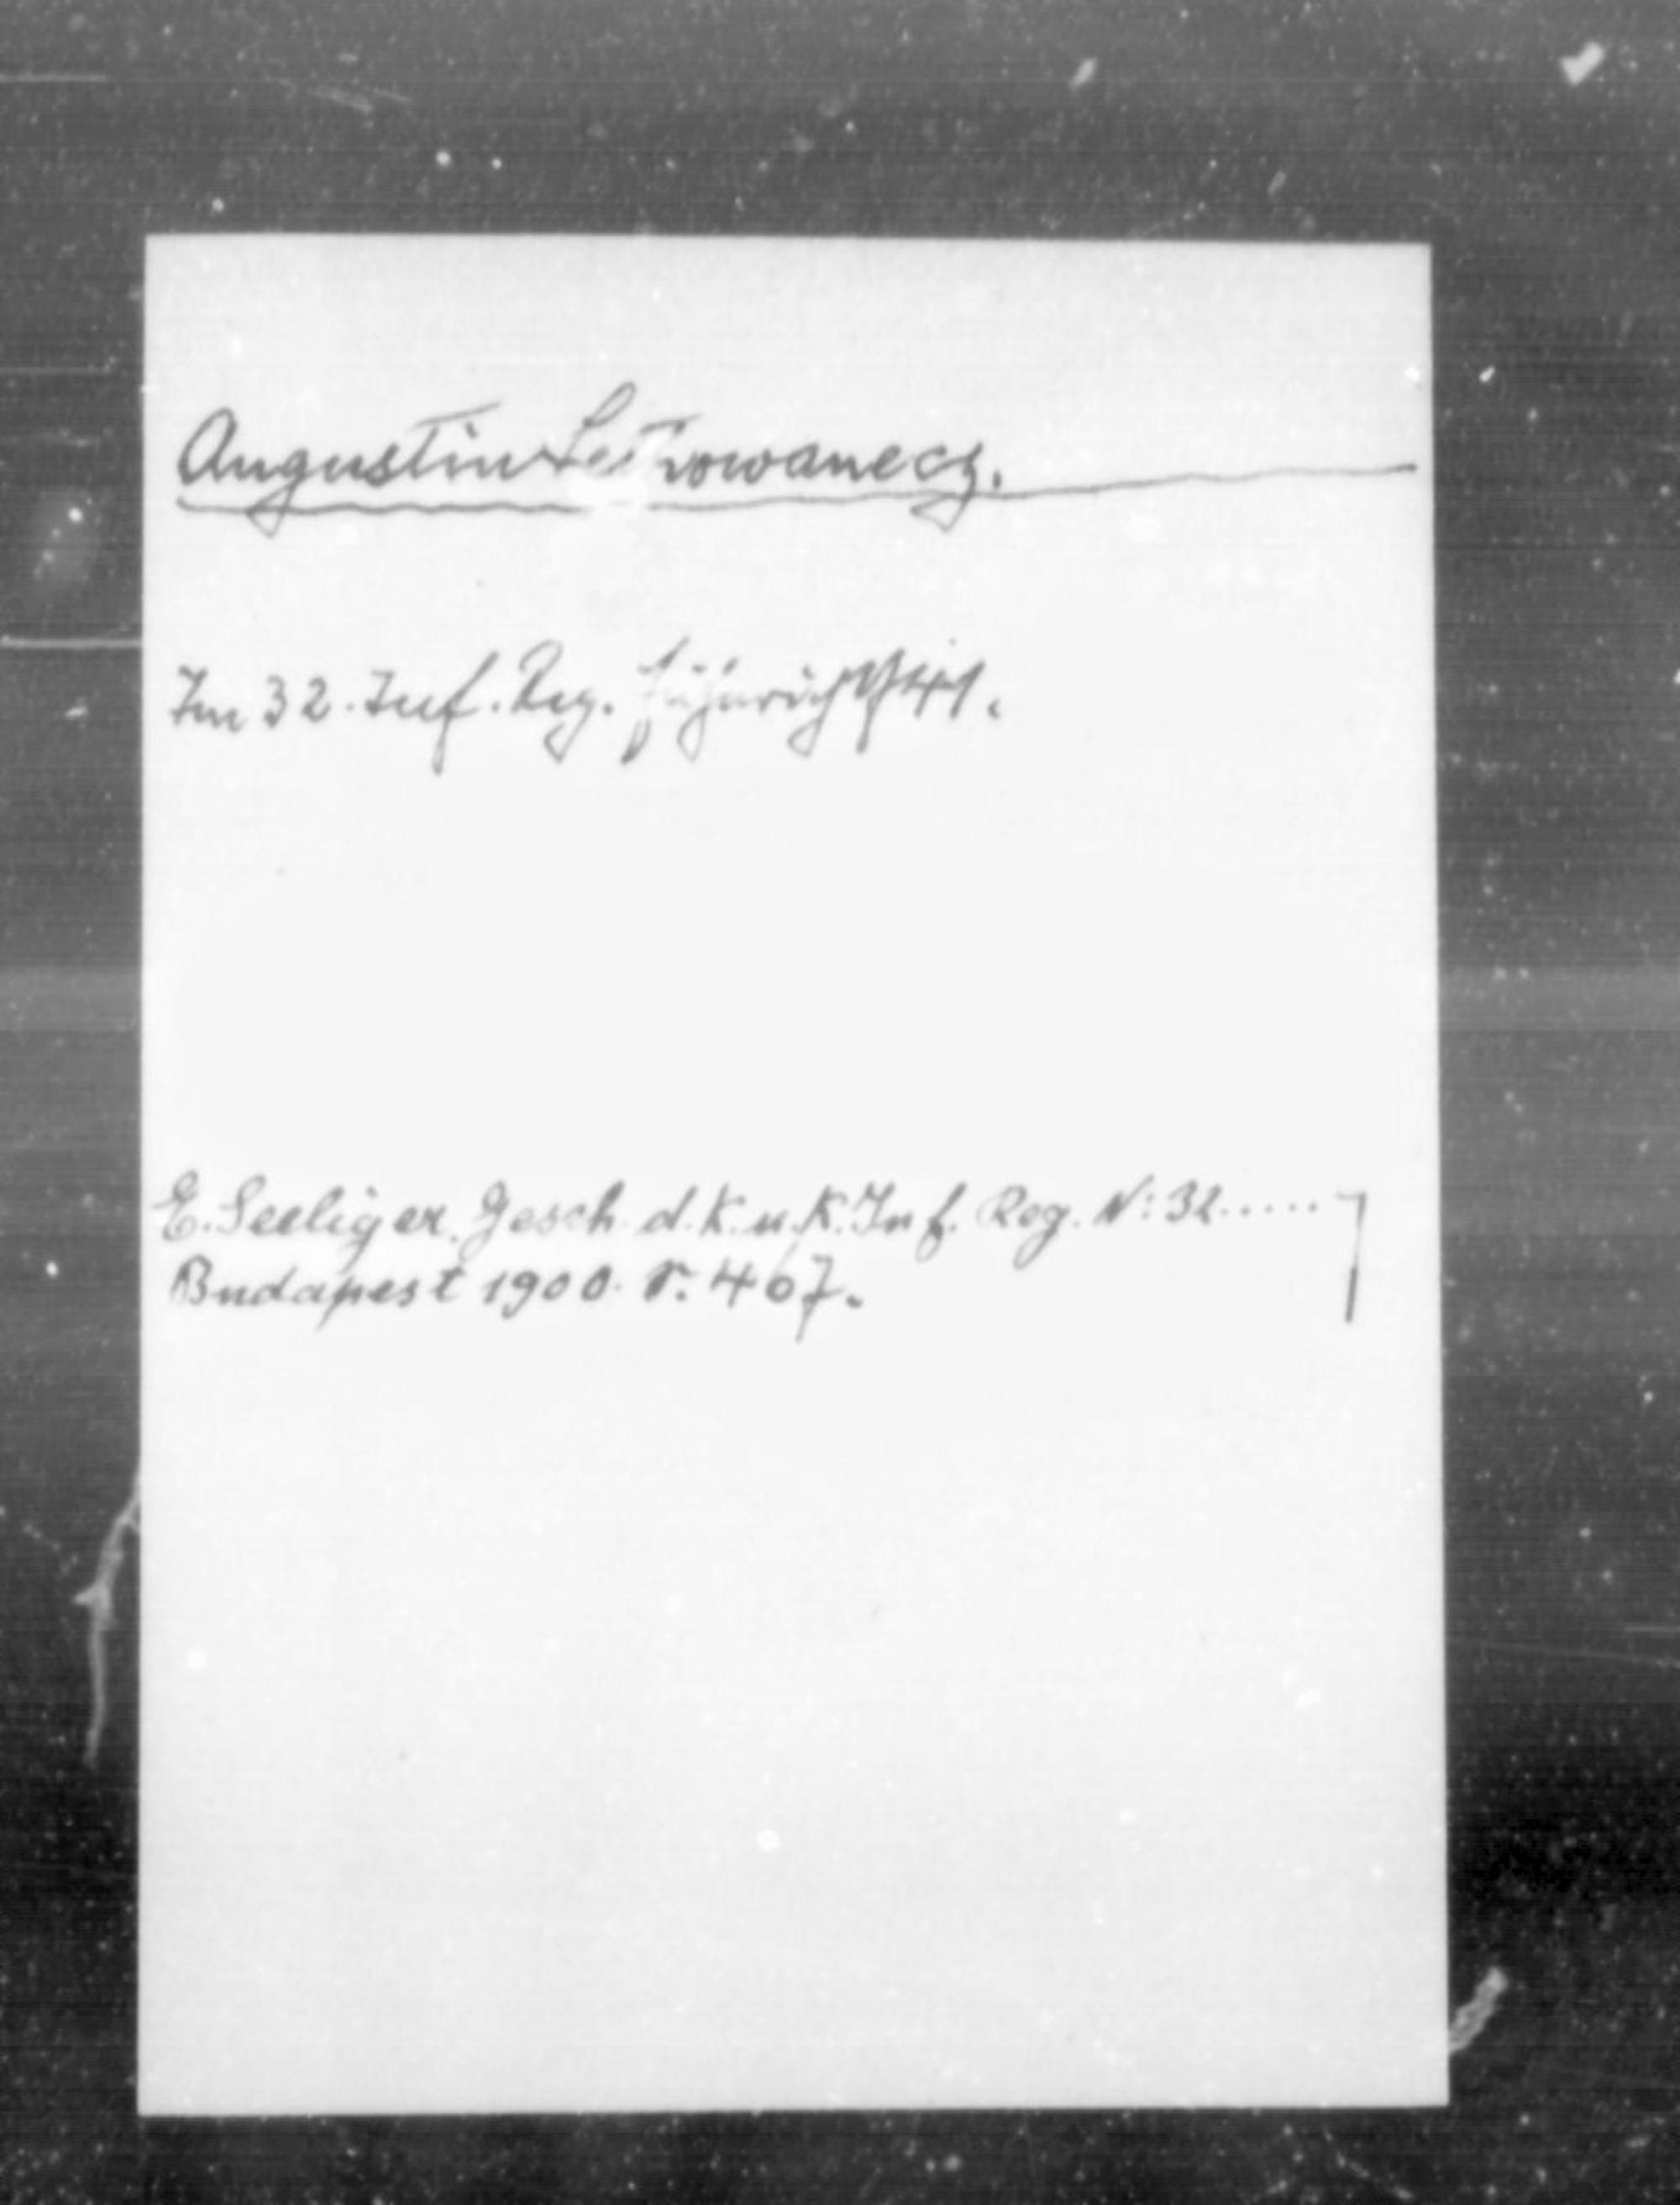 Augustin Letrowanecz.
Im 32. Inf. Reg. Fähnrich 1741.
E. Seeliger. Gesch. d. K. u. K. Inf. Reg. N: 32.....
Budapest 1900. S. 467.